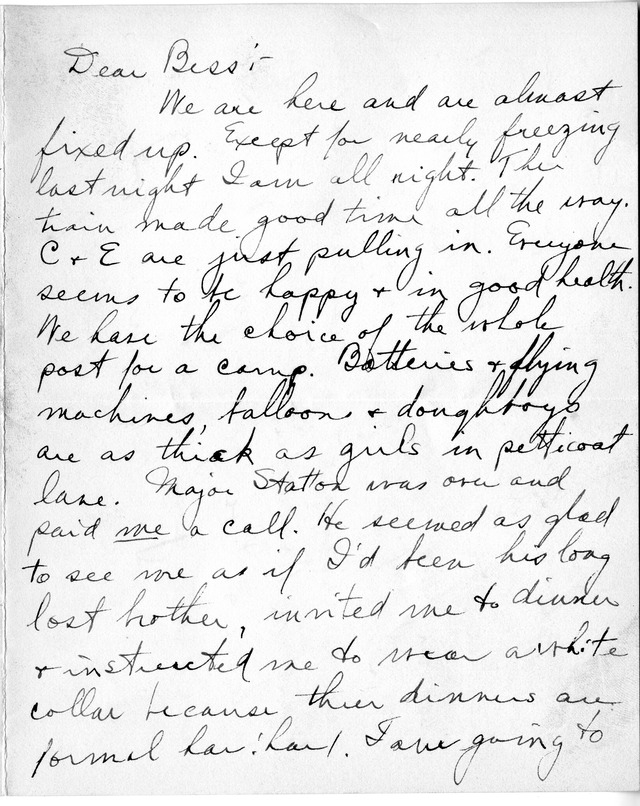 Dear Bess:-
We are here and are almost
fixed up. Except for nearly freezing
last night I am all right. The
train made good time all the way.
C + E are just pulling in. Everyone
seems to be happy + in good health.
We have the choice of the whole
post for a camp. Batteries + flying
machines, balloons + doughboys
are as thick as girls in petticoat
lane. Major Statton was over and
paid me a call. He seemed as glad
to see me as if I'd been his long
lost brother, invited me to dinner
+ instructed me to wear a white
collar because their dinners are
formal ha! ha!. I am going to